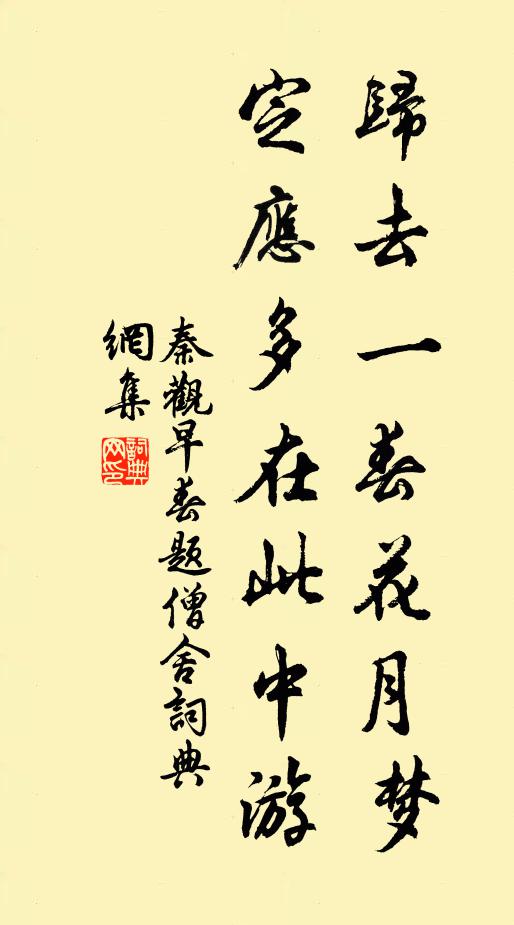 歸去一春花月梦
定應多在此中游
秦觀早春題僧舍詞典
網集
詞典網印